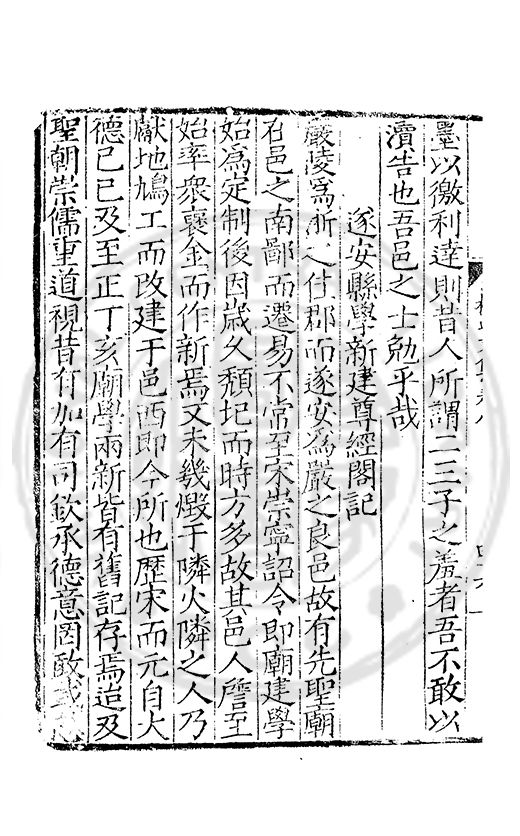 墨以徼利達則昔人所謂二三子之羞者吾不敢以
瀆告也吾邑之士勉乎哉
遂安縣學新建尊經閣記
嚴陵為浙之佳郡而遂安為嚴之良邑故有先聖廟
在邑之南鄙而遷易不常至宋崇寧詔令即廟建學
始為定制後因歲久頹圮而時方多故其邑人詹至
始率衆裒金而作新焉又未幾燬于隣火隣之人乃
獻地鳩工而改建于邑西即今所也歷宋而元自大
德己巳及至正丁亥廟學兩新皆有舊記存焉迨及
聖朝崇儒重道視昔有加有司欽承德意罔敢或